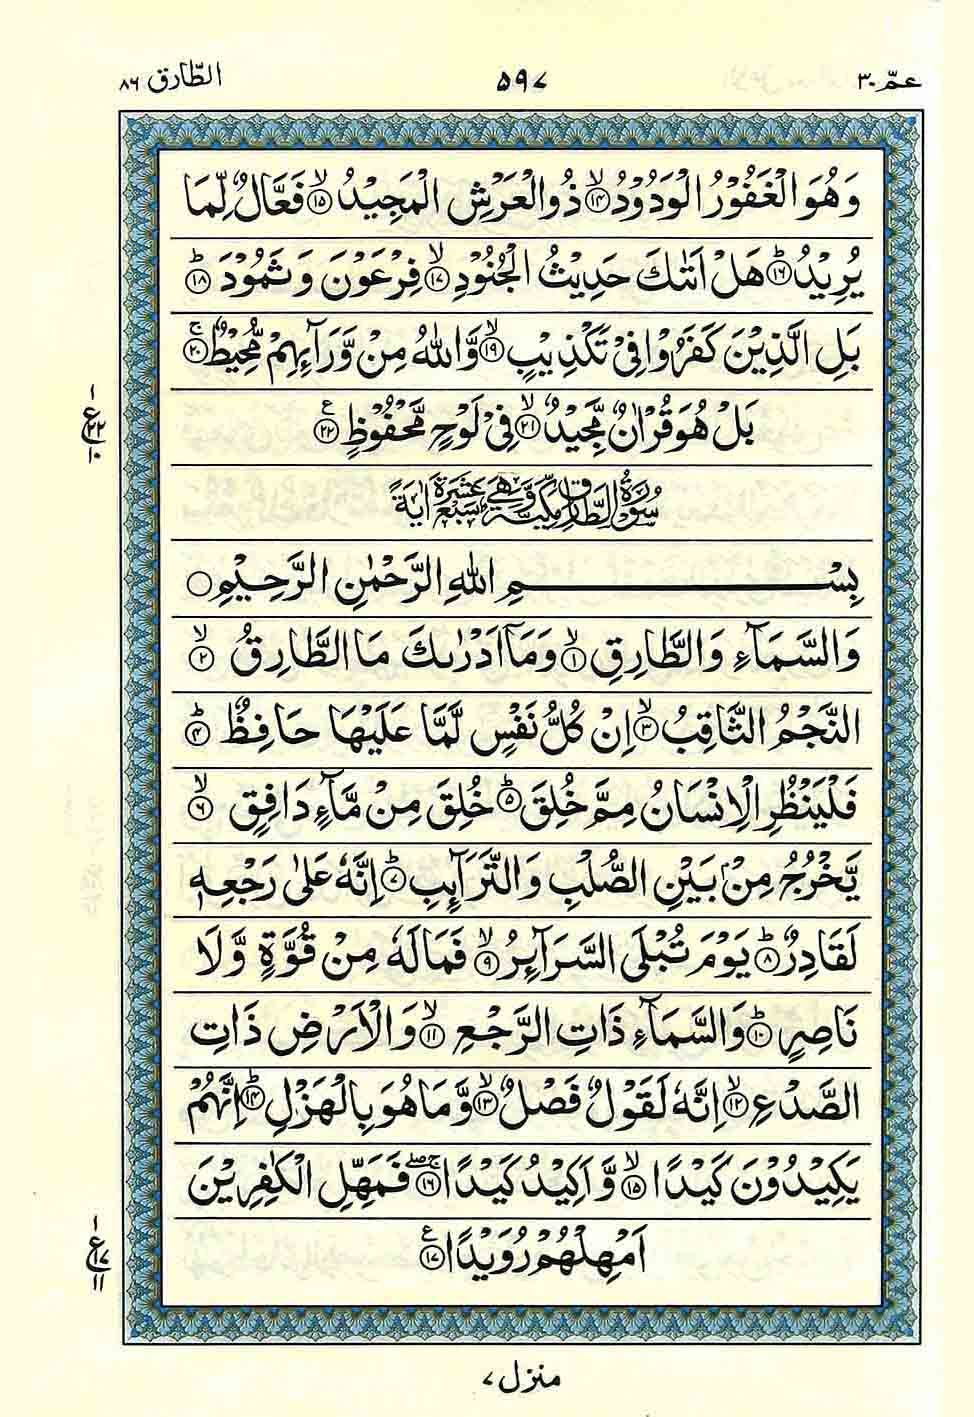 عمّ ۳۰
۵۹۷
الطّارق ۸۶
وَهُوَ الْغَفُوْرُ الْوَدُوْدُ ۙ﴿۱۴﴾ ذُو الْعَرْشِ الْمَجِيْدُ ۙ﴿۱۵﴾ فَعَّالٌ لِّمَا
يُرِيْدُ ؕ﴿۱۶﴾ هَلْ اَتٰىكَ حَدِيْثُ الْجُنُوْدِ ۙ﴿۱۷﴾ فِرْعَوْنَ وَ ثَمُوْدَ ؕ﴿۱۸﴾
بَلِ الَّذِيْنَ كَفَرُوْا فِيْ تَكْذِيْبٍ ۙ﴿۱۹﴾ وَّاللّٰهُ مِنْ وَّرَآئِهِمْ مُّحِيْطٌ ۚ﴿۲۰﴾
بَلْ هُوَ قُرْاٰنٌ مَّجِيْدٌ ۙ﴿۲۱﴾ فِيْ لَوْحٍ مَّحْفُوْظٍ ع﴿۲۲﴾
۱
ع ۲۲
۱۰
سُوْرَةُ الطَّارِقِ مَكِّيَّةٌ وَّهِيَ سَبْعَ عَشْرَةَ اٰيَةً
بِسْمِ اللّٰهِ الرَّحْمٰنِ الرَّحِيْمِ ○
وَالسَّمَآءِ وَالطَّارِقِ ۙ﴿۱﴾ وَمَاۤ اَدْرٰىكَ مَا الطَّارِقُ ۙ﴿۲﴾
النَّجْمُ الثَّاقِبُ ۙ﴿۳﴾ اِنْ كُلُّ نَفْسٍ لَّمَّا عَلَيْهَا حَافِظٌ ؕ﴿۴﴾
فَلْيَنْظُرِ الْاِنْسَانُ مِمَّ خُلِقَ ؕ﴿۵﴾ خُلِقَ مِنْ مَّآءٍ دَافِقٍ ۙ﴿۶﴾
يَّخْرُجُ مِنْۢ بَيْنِ الصُّلْبِ وَالتَّرَآئِبِ ؕ﴿۷﴾ اِنَّهٗ عَلٰى رَجْعِهٖ
لَقَادِرٌ ؕ﴿۸﴾ يَوْمَ تُبْلَى السَّرَآئِرُ ۙ﴿۹﴾ فَمَا لَهٗ مِنْ قُوَّةٍ وَّلَا
نَاصِرٍ ؕ﴿۱۰﴾ وَالسَّمَآءِ ذَاتِ الرَّجْعِ ۙ﴿۱۱﴾ وَالْاَرْضِ ذَاتِ
الصَّدْعِ ۙ﴿۱۲﴾ اِنَّهٗ لَقَوْلٌ فَصْلٌ ۙ﴿۱۳﴾ وَّمَا هُوَ بِالْهَزْلِ ؕ﴿۱۴﴾ اِنَّهُمْ
يَكِيْدُوْنَ كَيْدًا ۙ﴿۱۵﴾ وَّاَكِيْدُ كَيْدًا ۚۖ﴿۱۶﴾ فَمَهِّلِ الْكٰفِرِيْنَ
اَمْهِلْهُمْ رُوَيْدًا ع﴿۱۷﴾
۱
ع ۱۷
۱۱
منزل ۷